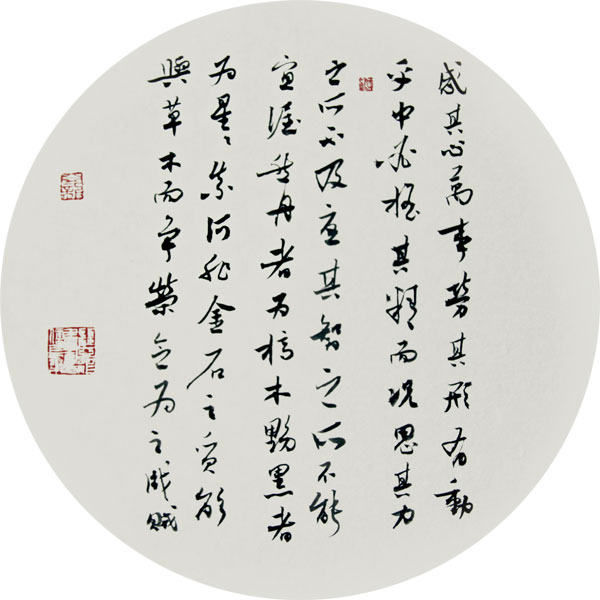 感其心萬事勞其形有動
乎中必摇其精而况思其力
之所不及憂其智之所不能
宜渥然丹者为槁木黟黑者
为星〻奈何非金石之質欲
與草木而争榮念为之戕賊